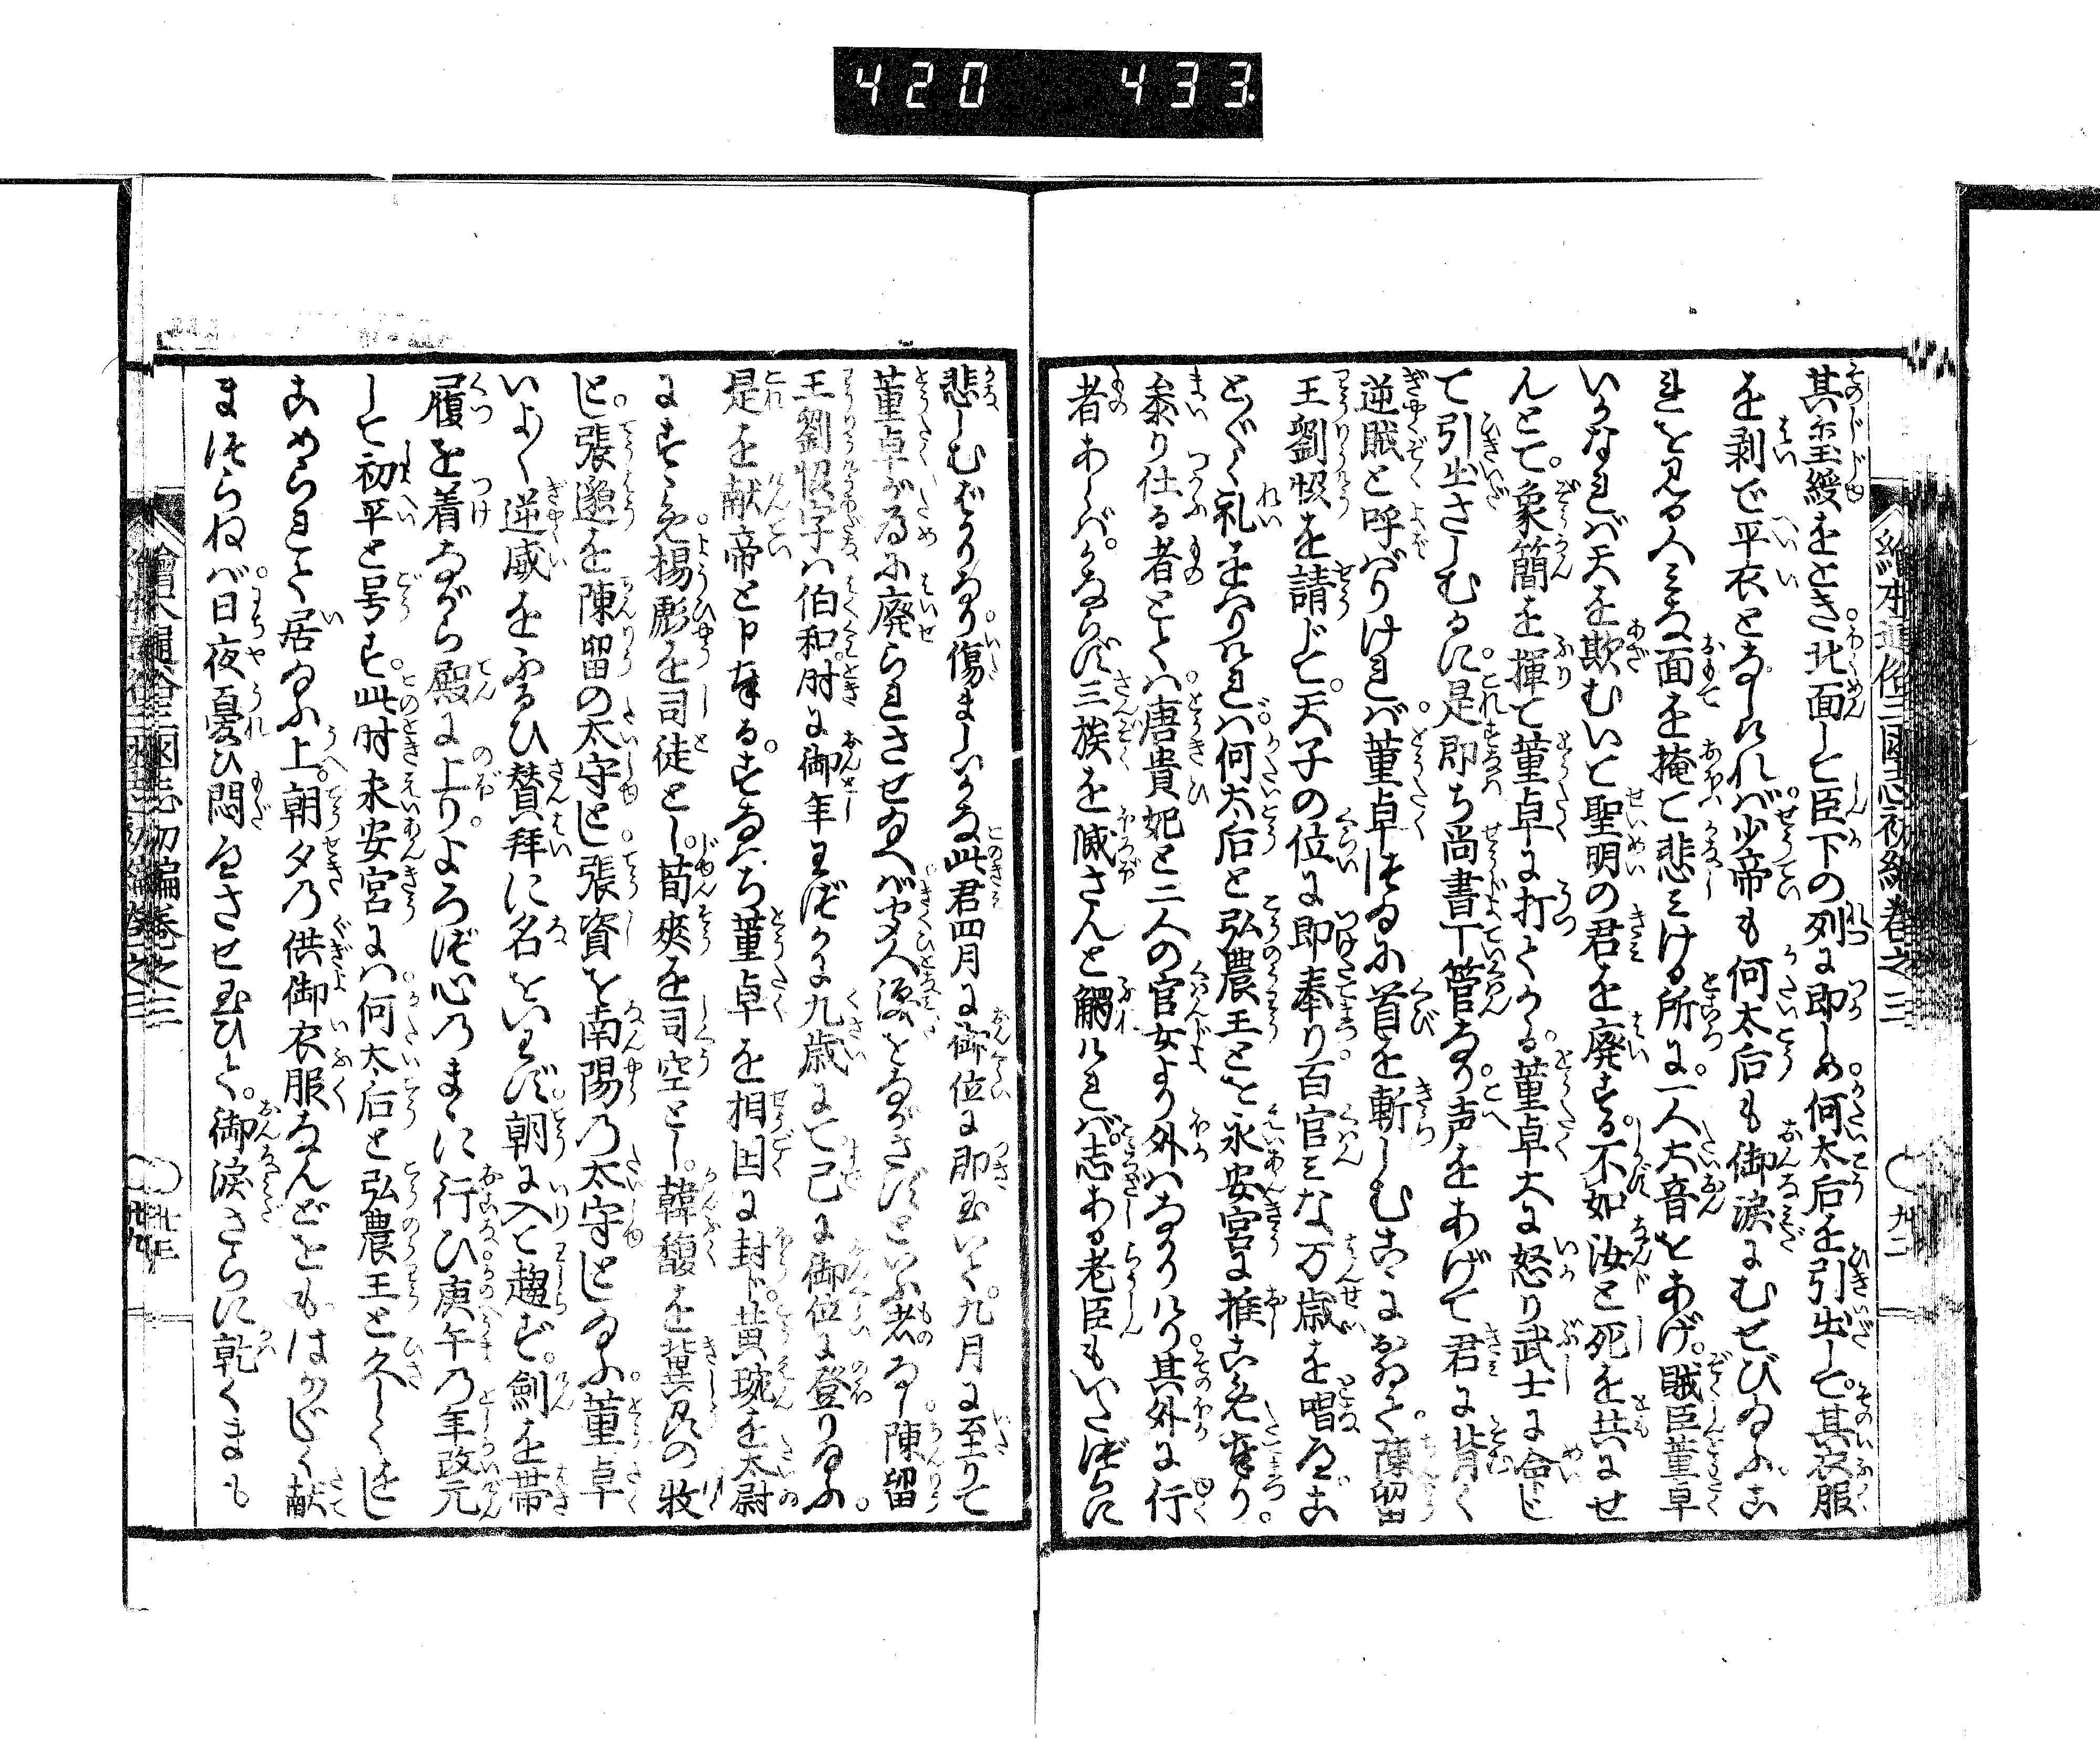 420 433
繪本通俗三国志初編巻之三
其璽綬をとき北面して臣下の列に即しめ何太后を引出して其衣服
を剥で平衣となしければ少帝も何太后も御涙にむせび給ふこ
れを見る人みな面を掩て悲みける所に一人大音をあげ賊臣董卓
いかなれば天を欺むいて聖明の君を廃する不如汝と死を共にせ
んとて象簡を揮て董卓に打てかかる董卓大に怒り武士に命じ
て引出さしむるに是即ち尚書丁管なり声をあげて君に背く
逆賊と呼ばりければ董卓つゐに首を斬しむここにおゐて陳留
王劉協を請じて天子の位に即奉り百官みな万歳を唱へこ
とごとく礼をはりければ何太后と弘農王とを永安宮に推こめ奉り。
参り仕る者とては唐貴妃と二人の官女より外はなかりけり其外に行
者あらばかならず三族を滅さんと觸ければ志ある老臣もいたづらに
悲しむばかりなり傷ましいかな此君四月に御位に即玉いて九月に至りて
董卓が為に廃られさせ給へば聞人涙をながさずといふ者なし陳留
王劉協字は伯和時に御年わづかに九歳にて已に御位に登り給ふ。
是を献帝と申奉るすなはち董卓を相国に封ド黄琬を太尉
にすゝめ楊彪を司徒とし荀爽を司空とし韓馥を冀州の牧
とし張邈を陳留の太守とし張資を南陽の太守とし給ふ董卓
いよ〱逆威を震ひ賛拜に名をいはず朝に入て趨ず劍を帯
履を着ながら殿に上りよろづ心のまゝに行ひ庚午の年改元
して初平と号す此時永安宮には何太后と弘農王と久しくをし
こめられて居給ふ上朝夕の供御衣服なんどをもはか〲しく献
まつらねば日夜憂ひ悶へさせ玉ひて御涙さらに乾くまも